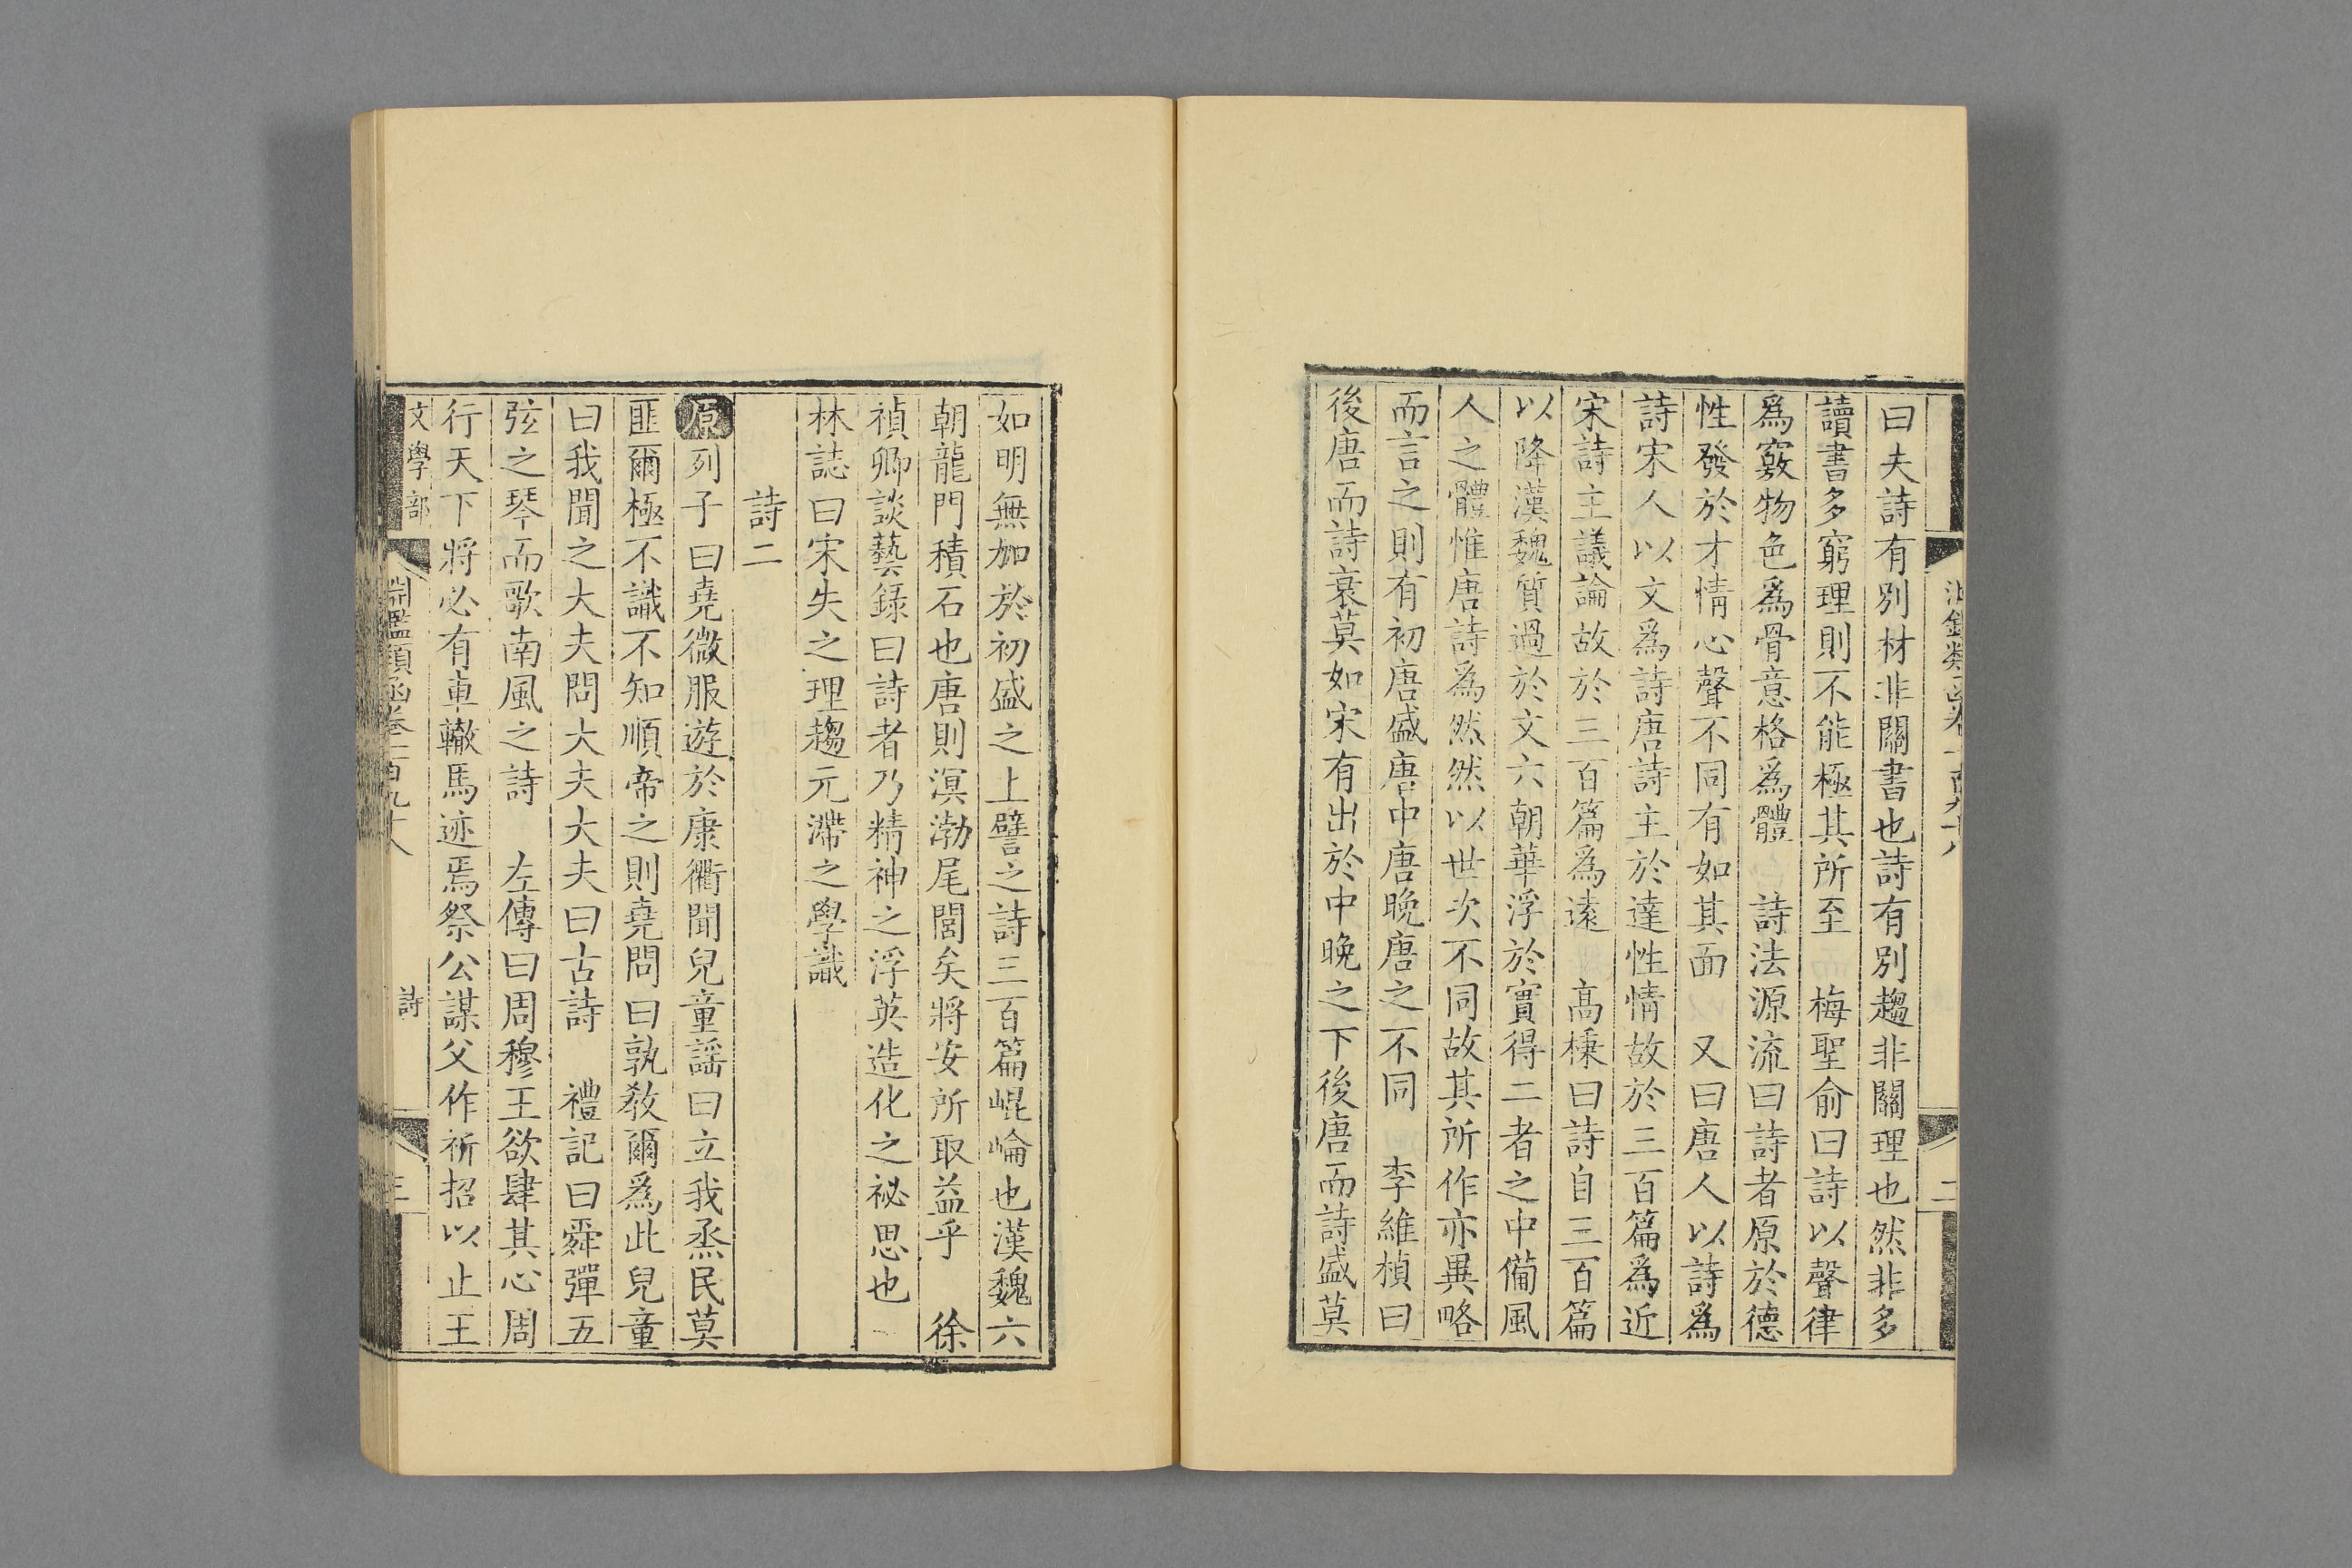 曰夫詩有別材非關書也詩有別趨非關理也然非多
讀書多窮理則不能極其所至　梅聖俞曰詩以聲律
爲竅物色爲骨意格爲體　詩法源流曰詩者原於德
性發於才情心聲不同有如其面　又曰唐人以詩爲
詩宋人以文爲詩唐詩主於達性情故於三百篇爲近
宋詩主議論故於三百篇爲遠　高棅曰詩自三百篇
以降漢魏質過於文六朝華浮於實得二者之中備風
人之體惟唐詩爲然然以世次不同故其所作亦異略
而言之則有初唐盛唐中唐晚唐之不同　李維楨曰
後唐而詩衰莫如宋有出於中晚之下後唐而詩盛莫
二
如明無加於初盛之上譬之詩三百篇崐崘也漢魏六
朝龍門積石也唐則溟渤尾閭矣將安所取益乎　徐
禎卿談藝錄曰詩者乃精神之浮英造化之祕思也
林誌曰宋失之理趨元滯之學識
詩二
原列子曰堯微服遊於康衢聞兒童謡曰立我烝民莫
匪爾極不識不知順帝之則堯問曰孰教爾爲此兒童
曰我聞之大夫問大夫大夫曰古詩　禮記曰舜彈五
弦之琴而歌南風之詩　左傳曰周穆王欲肆其心周
行天下將必有車轍馬迹焉祭公謀父作祈招以止王
文學部
淵鑑類函卷一百九十八
詩
三